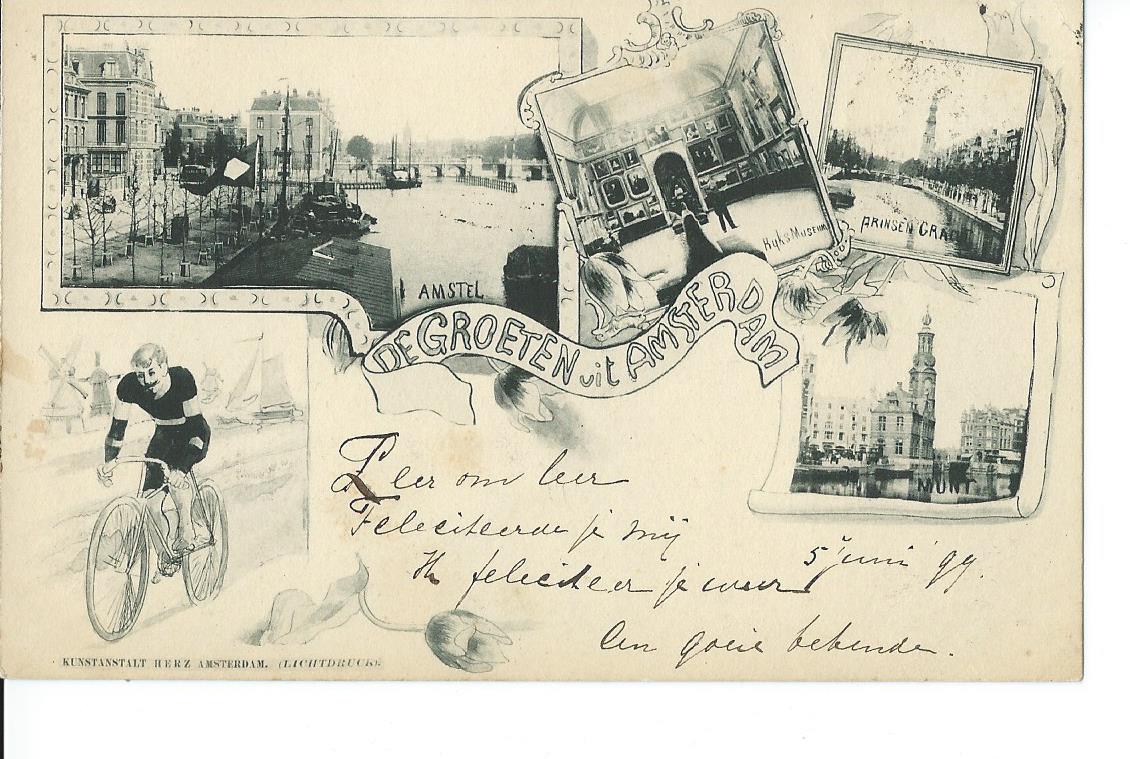 AMSTEL
Ryks Museum
PRINSEN GRA
DE GROETEN uit AMSTERDAM
MUNT
Leer om leer
Feliciteerde je mij
Ik feliciteer je weer
5 juni '99.
Een goeie bekende.
KUNSTANSTALT HERZ AMSTERDAM. (LICHTDRUCK).